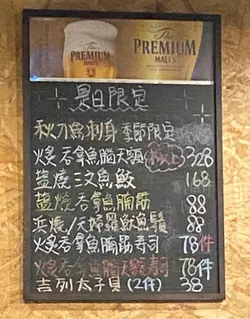 The
PREMIUM
MALT'S
The
PREMIUM
MALT'S
是日限定
秋刀魚刺身 季節限定
炙吞拿魚腦天頰 328
塩燒三文魚鮫 168
塩燒吞拿魚腩筋 88
浜燒/天婦羅魷魚鬚 88
火炙吞拿魚腦昂寿司 78件
火炙吞拿魚腦天頰寿司 78件
吉列太子貝(2件) 38